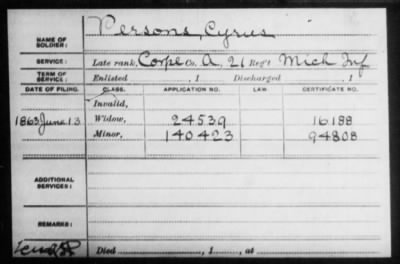 NAME OF SOLDIER: Persons, Cyrus
SERVICE: Late rank, Corpl Co. A, 21 Reg't Mich Inf
TERM OF SERVICE: Enlisted , 1 Discharged , 1
DATE OF FILING. CLASS. APPLICATION NO. LAW. CERTIFICATE NO.
Invalid,
1863 June 13 Widow, 24539 16188
Minor, 140423 94808
ADDITIONAL SERVICES:
REMARKS:
Died , 1 , at